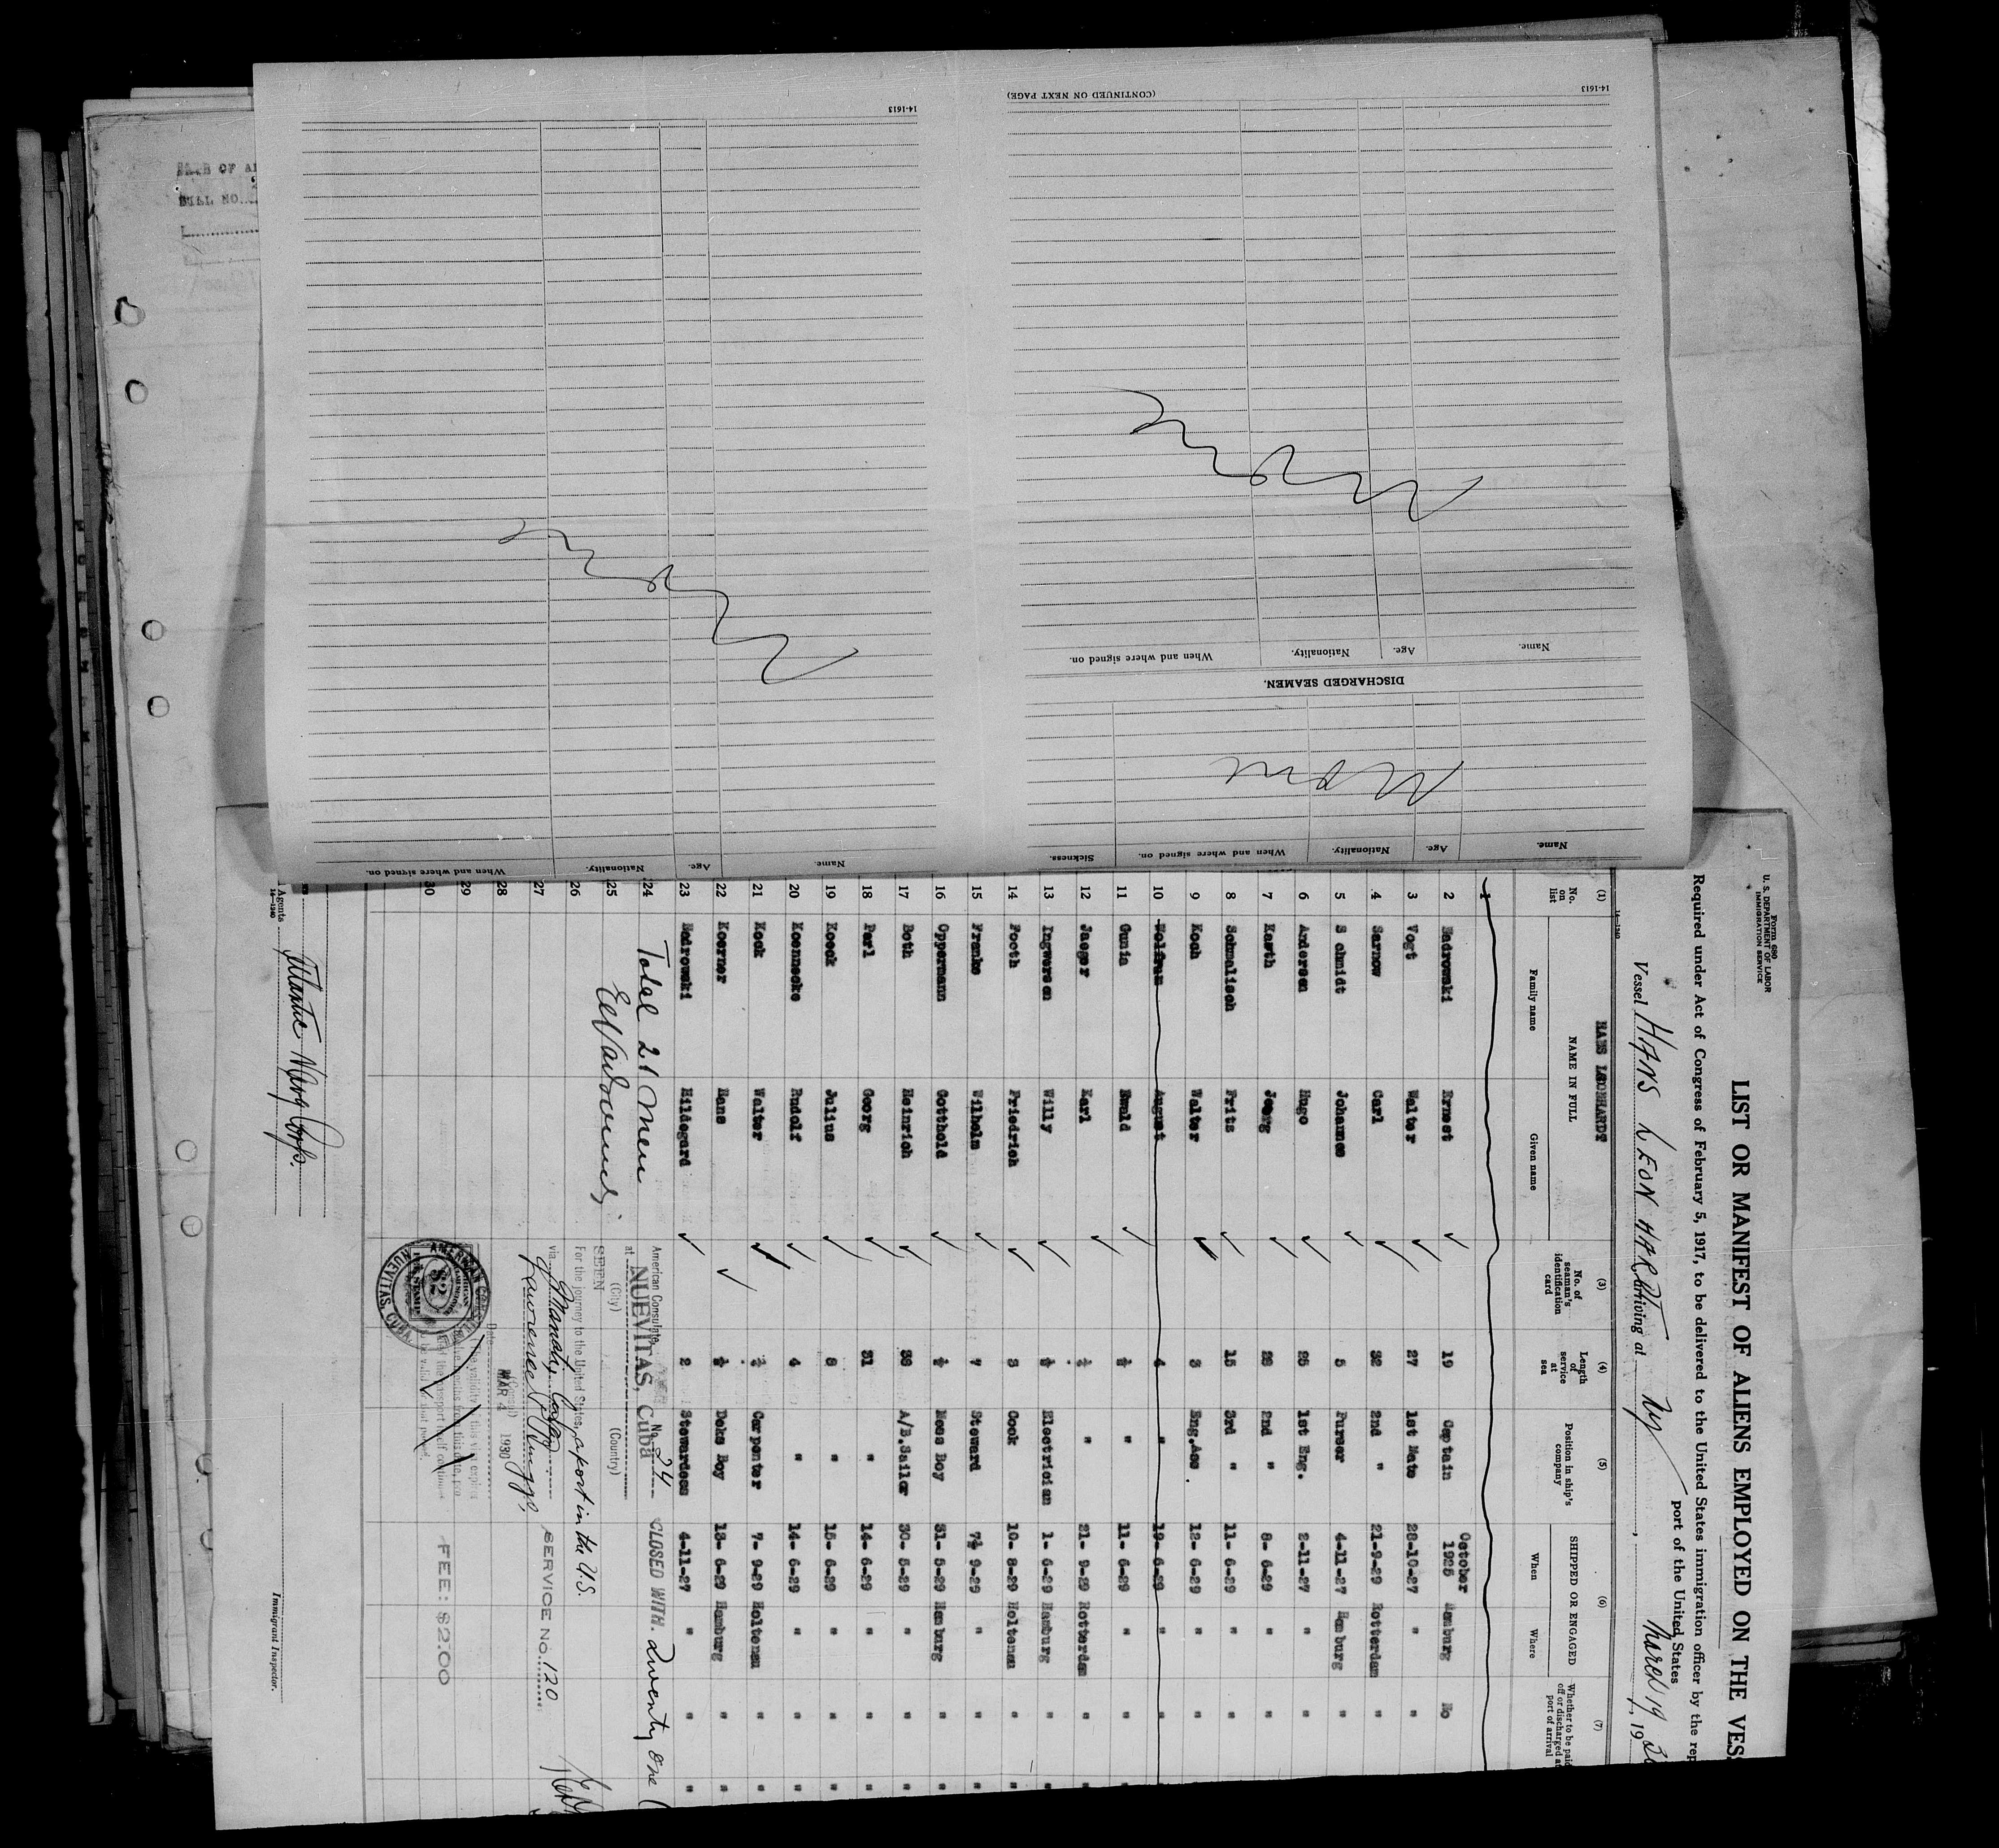 Form 680
U. S. DEPARTMENT OF LABOR
IMMIGRATION SERVICE
LIST OR MANIFEST OF ALIENS EMPLOYED ON THE VES
Required under Act of Congress of February 5, 1917, to be delivered to the United States immigration officer by the rep
Vessel HANS LEONHARDT arriving at Ny, port of the United States March 19, 19
HANS LEONHARDT
(1) (3) (4) (5) (6) (7)
No. on list
NAME IN FULL
Family name Given name
No. of seaman's identification card
Length of service at sea
Position in ship's company
SHIPPED OR ENGAGED
When Where
Whether to be paid off or discharged at port of arrival
1
2 Badrowski Ernest 19 Captain October 1925 Hamburg No
3 Vogt Walter 27 1st Mate 28-10-27 " "
4 Sarnow Carl 32 2nd " 21-9-29 Rotterdam "
5 S chmidt Johannes 5 Purser 4-11-27 Hamburg "
6 Andersen Hugo 25 1st Eng. 2-11-27 " "
7 Kasth Joerg 28 2nd " 8- 6-29 " "
8 Schmalisch Frits 15 3rd " 11- 6-29 " "
9 Koch Walter 3 Eng.Ass. 12- 6-29 " "
10 Wolfrum August 4 " 19- 6-29 " "
11 Gunia Ewald ½ " 11- 6-29 " "
12 Jaeger Karl ½ " 21- 9-29 Rotterdam "
13 Ingwersen Willy ½ Electrician 1- 6-29 Hamburg "
14 Footh Friedrich 3 Cook 10- 8-29 Holtenau "
15 Franke Wilhelm 7 Steward 9-29 " "
16 Oppermann Gotthold ½ Mess Boy 31- 5-29 Hamburg "
17 Both Heinrich 38 A/B.Sailor 30- 5-29 " "
18 Perl Georg 31 " 14- 6-29 " "
19 Koeck Julius 8 " 15- 6-29 " "
20 Koennecke Rudolf 4 " 14- 6-29 " "
21 Kock Walter ½ Carpenter 7- 9-29 Holtenau "
22 Koerner Hans ½ Deks Boy 13- 6-29 Hamburg "
23 Badrowski Hildegard 2 Stewardess 4-11-27 " "
24 Total 21 Men
25
26
27
28
29
30
American Consulate No. 24 CLOSED WITH. Twenty one (
at NUEVITAS, Cuba
(City) (Country)
SEEN
For the journey to the United States, a port in the U.S.
via Manati,
SERVICE NO. 120
MAR 4 1930
FEE: $2.00
AMERICAN CONSUL
NUEVITAS, CUBA
$2
Agents
14-1240
Immigrant Inspector.
14-1613
(CONTINUED ON NEXT PAGE)
None
Name. Age. Nationality. When and where signed on. Sickness.
DISCHARGED SEAMEN.
Name. Age. Nationality. When and where signed on.
None
14-1613
Name. Age. Nationality. When and where signed on.
None